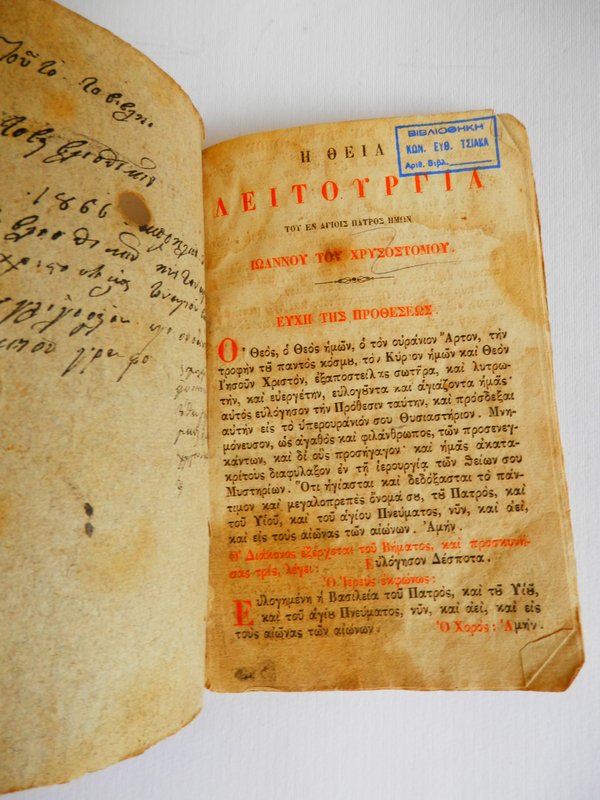 τοῦτο. το βιβλιο
1866
ΒΙΒΛΙΟΘΗΚΗ
ΚΩΝ. ΕΥΘ. ΤΣΙΑΚΑ
Αριθ. Βιβλ.
Η ΘΕΙΑ
ΛΕΙΤΟΥΡΓΙΑ
ΤΟΥ ΕΝ ΑΓΙΟΙΣ ΠΑΤΡΟΣ ΗΜΩΝ
ΙΩΑΝΝΟΥ ΤΟΥ ΧΡΥΣΟΣΤΟΜΟΥ.
ΕΥΧΗ ΤΗΣ ΠΡΟΘΕΣΕΩΣ.
Ὁ Θεὸς, ὁ Θεὸς ἡμῶν, ὁ τὸν οὐράνιον Ἄρτον, τὴν
τροφὴν τȣ͂ παντὸς κόσμȣ, τὸν Κύριον ἡμῶν καὶ Θεὸν
Ἰησοῦν Χριστὸν, ἐξαποστείλας σωτῆρα, καὶ λυτρω-
τὴν, καὶ εὐεργέτην, εὐλογȣ͂ντα καὶ ἁγιάζοντα ἡμᾶς·
αὐτὸς εὐλόγησον τὴν Πρόθεσιν ταύτην, καὶ πρόσδεξαι
αὐτὴν εἰς τὸ ὑπερουράνιόν σου Θυσιαστήριον. Μνη-
μόνευσον, ὡς ἀγαθὸς καὶ φιλάνθρωπος, τῶν προσενεγ-
κάντων, καὶ δι' οὓς προσήγαγον· καὶ ἡμᾶς ἀκατα-
κρίτους διαφύλαξον ἐν τῇ ἱερουργίᾳ τῶν Θείων σου
Μυστηρίων. Ὅτι ἡγίασται καὶ δεδόξασται τὸ πάν-
τιμον καὶ μεγαλοπρεπὲς ὄνομά σȣ, τοῦ Πατρὸς, καὶ
τοῦ Υἱοῦ, καὶ τοῦ ἁγίου Πνεύματος, νῦν, καὶ ἀεὶ,
καὶ εἰς τοὺς αἰῶνας τῶν αἰώνων. Ἀμήν.
Ὁ Διάκονος ἐξέρχεται τοῦ Βήματος, καὶ προσκυνή-
σας τρὶς, λέγει: Εὐλόγησον Δέσποτα.
Ὁ Ἱερεὺς ἐκφώνως:
Εὐλογημένη ἡ Βασιλεία τοῦ Πατρὸς, καὶ τȣ͂ Υἱȣ͂,
καὶ τοῦ ἁγίȣ Πνεύματος, νῦν, καὶ ἀεὶ, καὶ εἰς
τοὺς αἰῶνας τῶν αἰώνων. Ὁ Χορὸς: Ἀμήν.